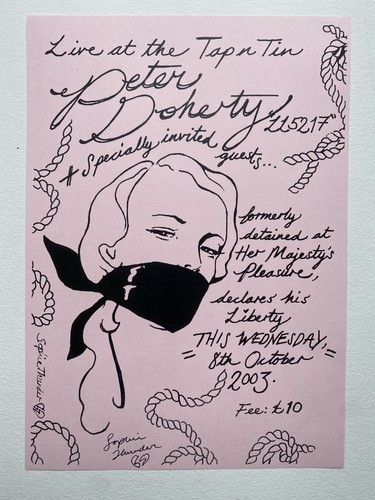 Live at the Tap n Tin
Peter
Doherty
"LL5217"
# Specially invited guests...
formerly
detained at
Her Majesty's
Pleasure,
declares his
Liberty
THIS WEDNESDAY,
= 8th October =
2003.
Fee: £10
Sophie Thunder
Sophie
Thunder